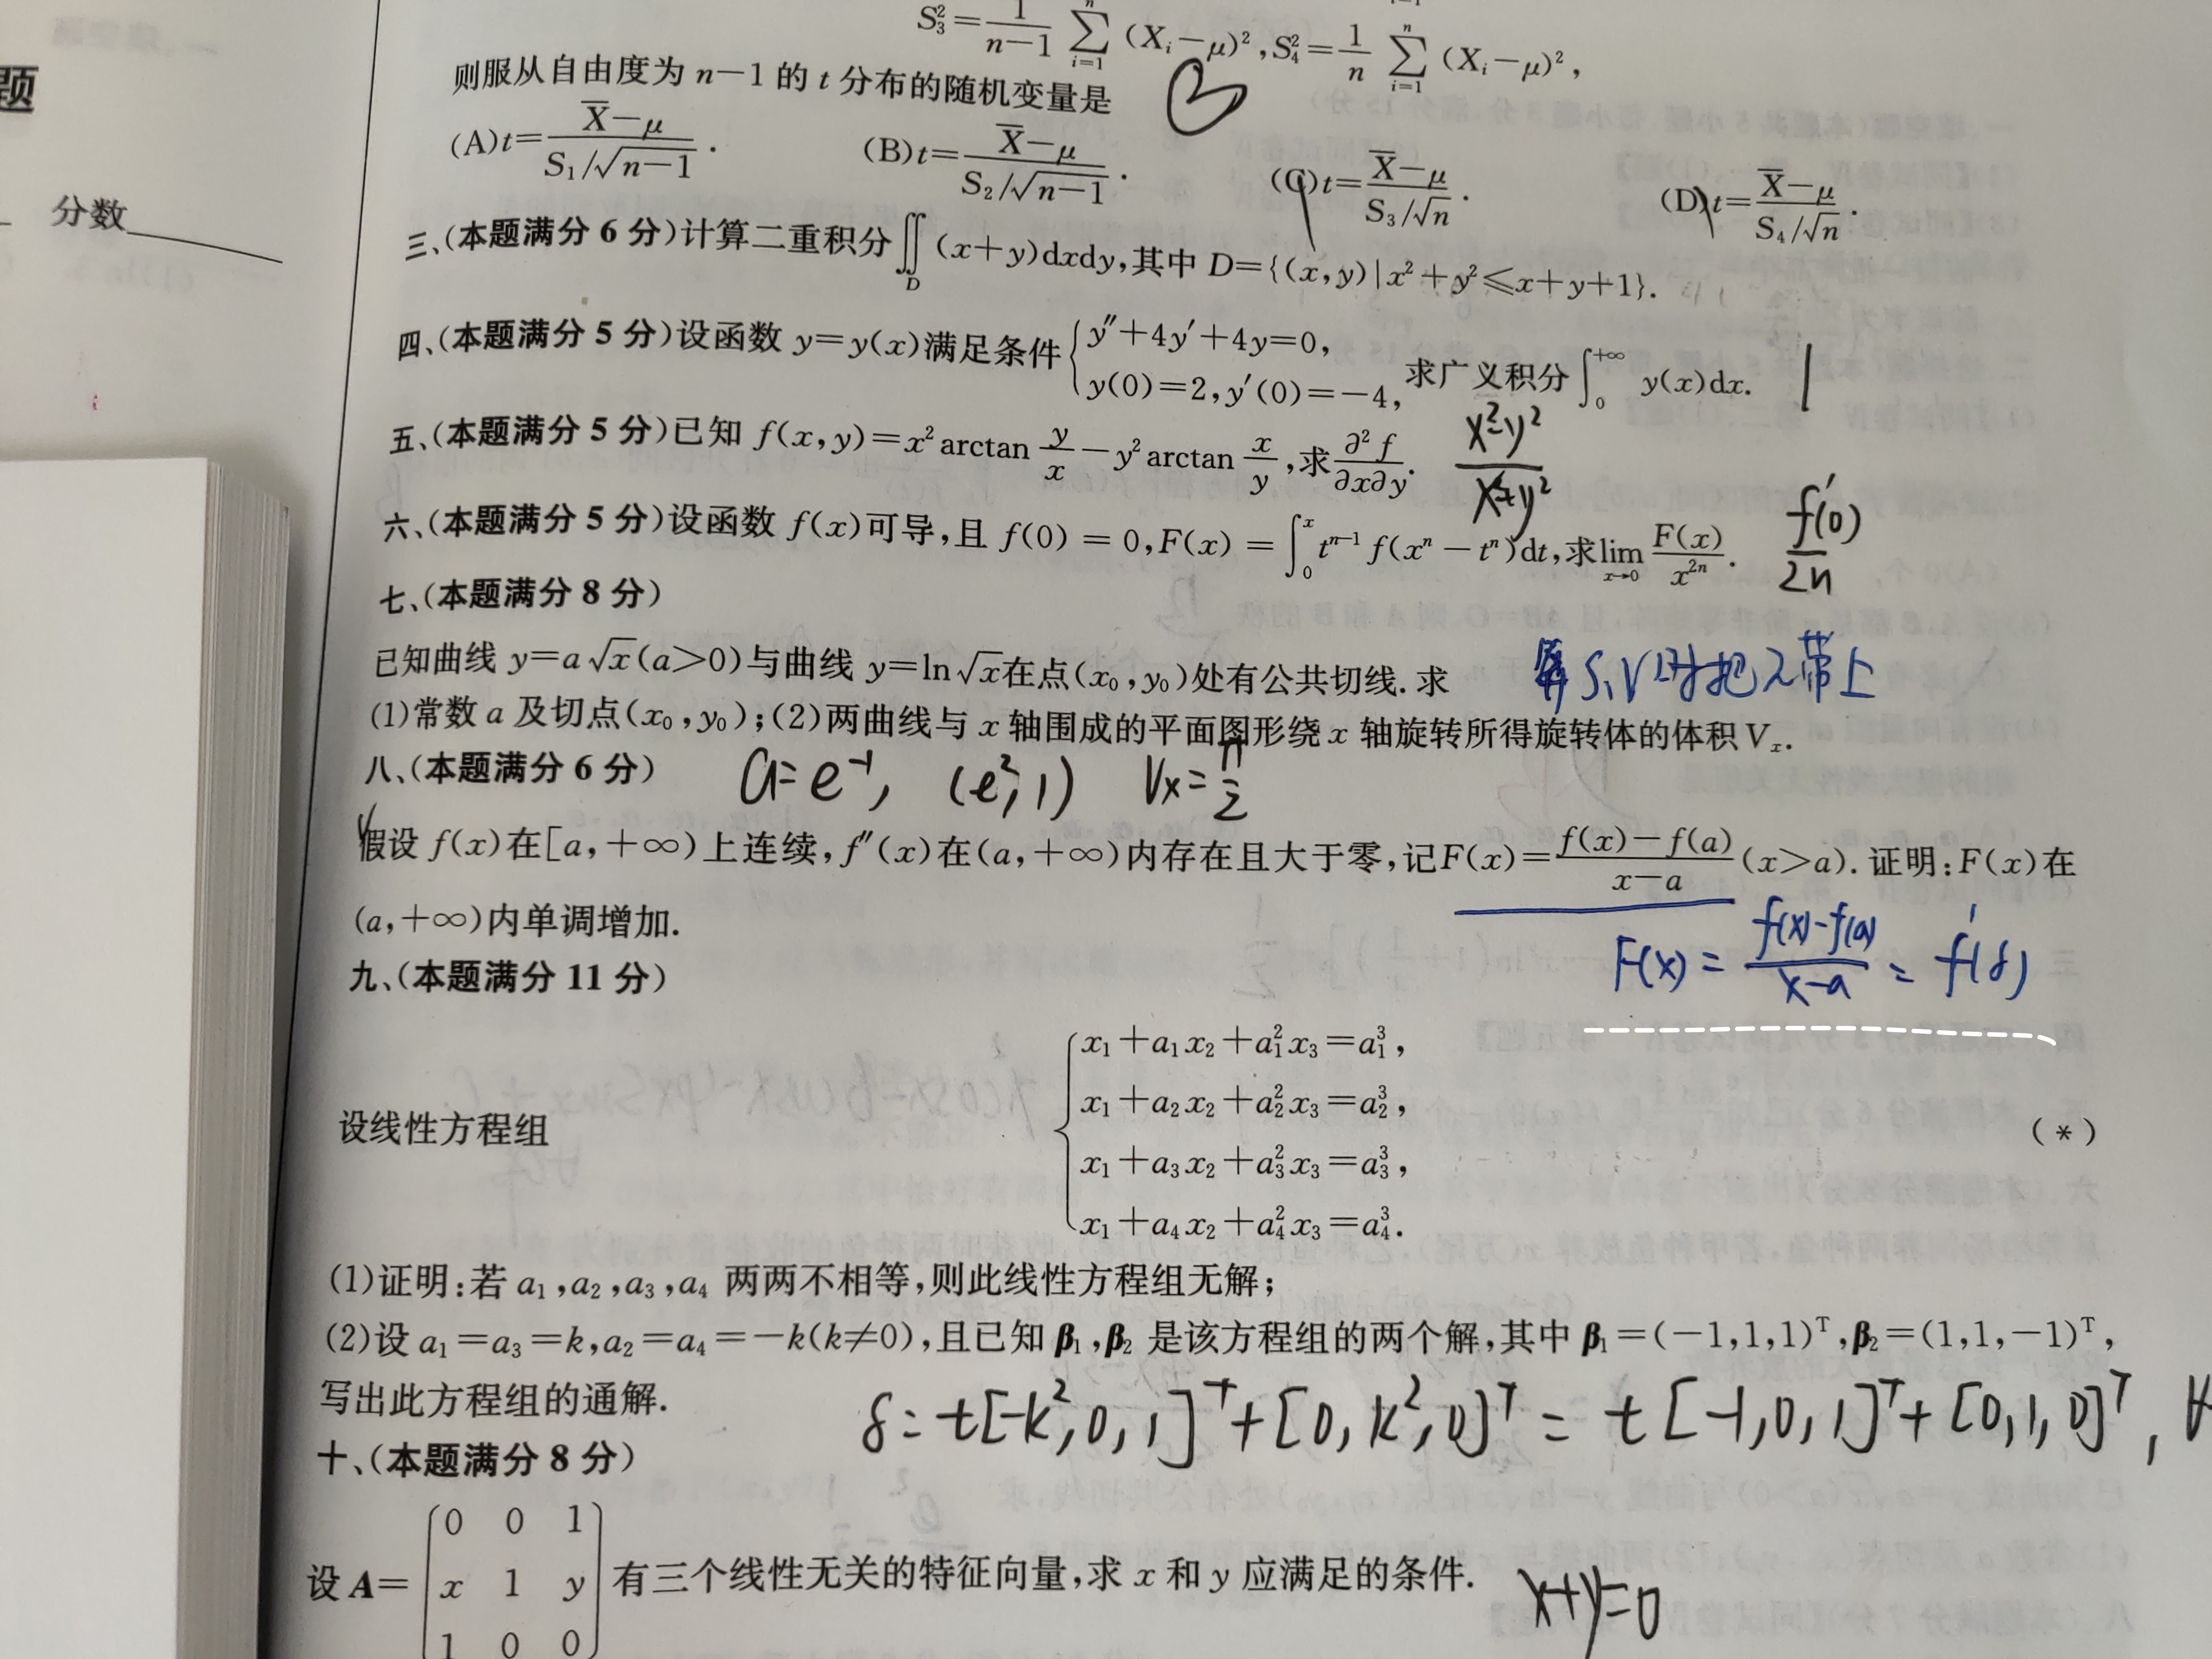 S₃²=1/(n−1) ∑_{i=1}^{n} (X_i−μ)²,S₄²=1/n ∑_{i=1}^{n} (X_i−μ)²,
题
则服从自由度为 n−1 的 t 分布的随机变量是 B
(A)t=(X̄−μ)/(S₁/√(n−1)). (B)t=(X̄−μ)/(S₂/√(n−1)). (C)t=(X̄−μ)/(S₃/√n). (D)t=(X̄−μ)/(S₄/√n).
分数
三、(本题满分 6 分)计算二重积分∬_D (x+y)dxdy,其中 D={(x,y)|x²+y²⩽x+y+1}.
四、(本题满分 5 分)设函数 y=y(x)满足条件{y″+4y′+4y=0, y(0)=2,y′(0)=−4, 求广义积分∫₀^{+∞} y(x)dx. 1
五、(本题满分 5 分)已知 f(x,y)=x² arctan y/x −y² arctan x/y ,求∂²f/∂x∂y. (x²−y²)/(x²+y²)
六、(本题满分 5 分)设函数 f(x)可导,且 f(0) = 0,F(x) = ∫₀^x t^{n−1} f(x^n − t^n)dt,求lim_{x→0} F(x)/x^{2n}. f′(0)/2n
七、(本题满分 8 分)
已知曲线 y=a√x(a>0)与曲线 y=ln√x在点(x₀,y₀)处有公共切线.求
(1)常数 a 及切点(x₀,y₀);(2)两曲线与 x 轴围成的平面图形绕 x 轴旋转所得旋转体的体积 V_x.
八、(本题满分 6 分) a=e⁻¹, (e²,1) Vx=π/2
假设 f(x)在[a,+∞)上连续,f″(x)在(a,+∞)内存在且大于零,记F(x)=(f(x)−f(a))/(x−a) (x>a).证明:F(x)在
(a,+∞)内单调增加.
F(x) = (f(x)-f(a))/(x-a) = f′(δ)
九、(本题满分 11 分)
x₁+a₁x₂+a₁²x₃=a₁³,
x₁+a₂x₂+a₂²x₃=a₂³,
设线性方程组 (*)
x₁+a₃x₂+a₃²x₃=a₃³,
x₁+a₄x₂+a₄²x₃=a₄³.
(1)证明:若 a₁,a₂,a₃,a₄ 两两不相等,则此线性方程组无解;
(2)设 a₁=a₃=k,a₂=a₄=−k(k≠0),且已知 β₁,β₂ 是该方程组的两个解,其中 β₁=(−1,1,1)ᵀ,β₂=(1,1,−1)ᵀ,
写出此方程组的通解.
δ= t[-k²,0,1]ᵀ+[0,k²,0]ᵀ = t[-1,0,1]ᵀ+[0,1,0]ᵀ,
十、(本题满分 8 分)
0 0 1
设 A= x 1 y 有三个线性无关的特征向量,求 x 和 y 应满足的条件. x+y=0
1 0 0